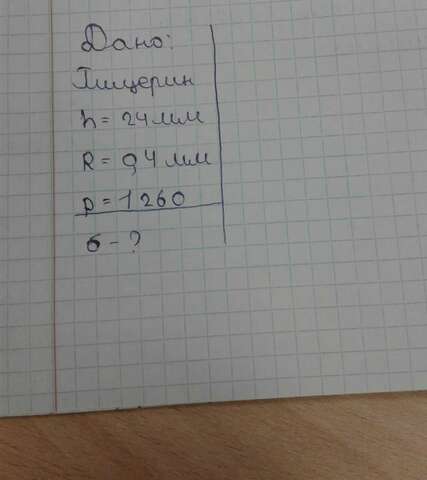 Дано:
Глицерин
h = 24 мм
R = 0,4 мм
ρ = 1260
б - ?